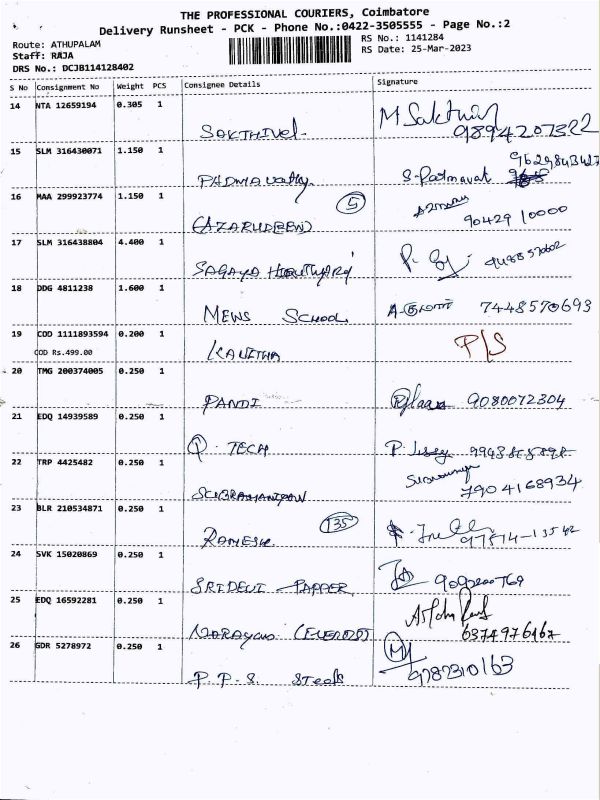 THE PROFESSIONAL COURIERS, Coimbatore
Delivery Runsheet - PCK - Phone No.:0422-3505555 - Page No.:2
Route: ATHUPALAM
RS No.: 1141284
Staff: RAJA
RS Date: 25-Mar-2023
DRS No.: DCJB114128402
S No Consignment No Weight PCS Consignee Details Signature
14 NTA 12659194 0.305 1
SAKTHIVel. M Sakthivel 9894207322
15 SLM 316430071 1.150 1
PADMAvathy. S. Patmavati
16 MAA 299923774 1.150 1
5
(AZARUDEEN) 90429 10000
17 SLM 316438804 4.400 1
SAGAYA
18 DDG 4811238 1.600 1
MEWS SCHOOL 7448570693
19 COD 1111893594 0.200 1
COD Rs.499.00
KAVITHA P/S
20 TMG 200374005 0.250 1
PANDI 9080072304
21 EDQ 14939589 0.250 1
Q. TECH
22 TRP 4425482 0.250 1
SUBRAMANIYAN 7904168934
23 BLR 210534871 0.250 1
135
RAMESH. 97874-13542
24 SVK 15020869 0.250 1
SRIDEVI PAPPER
25 EDQ 16592281 0.250 1
6374976167
26 GDR 5278972 0.250 1
P.P.S. Steels 9787310163